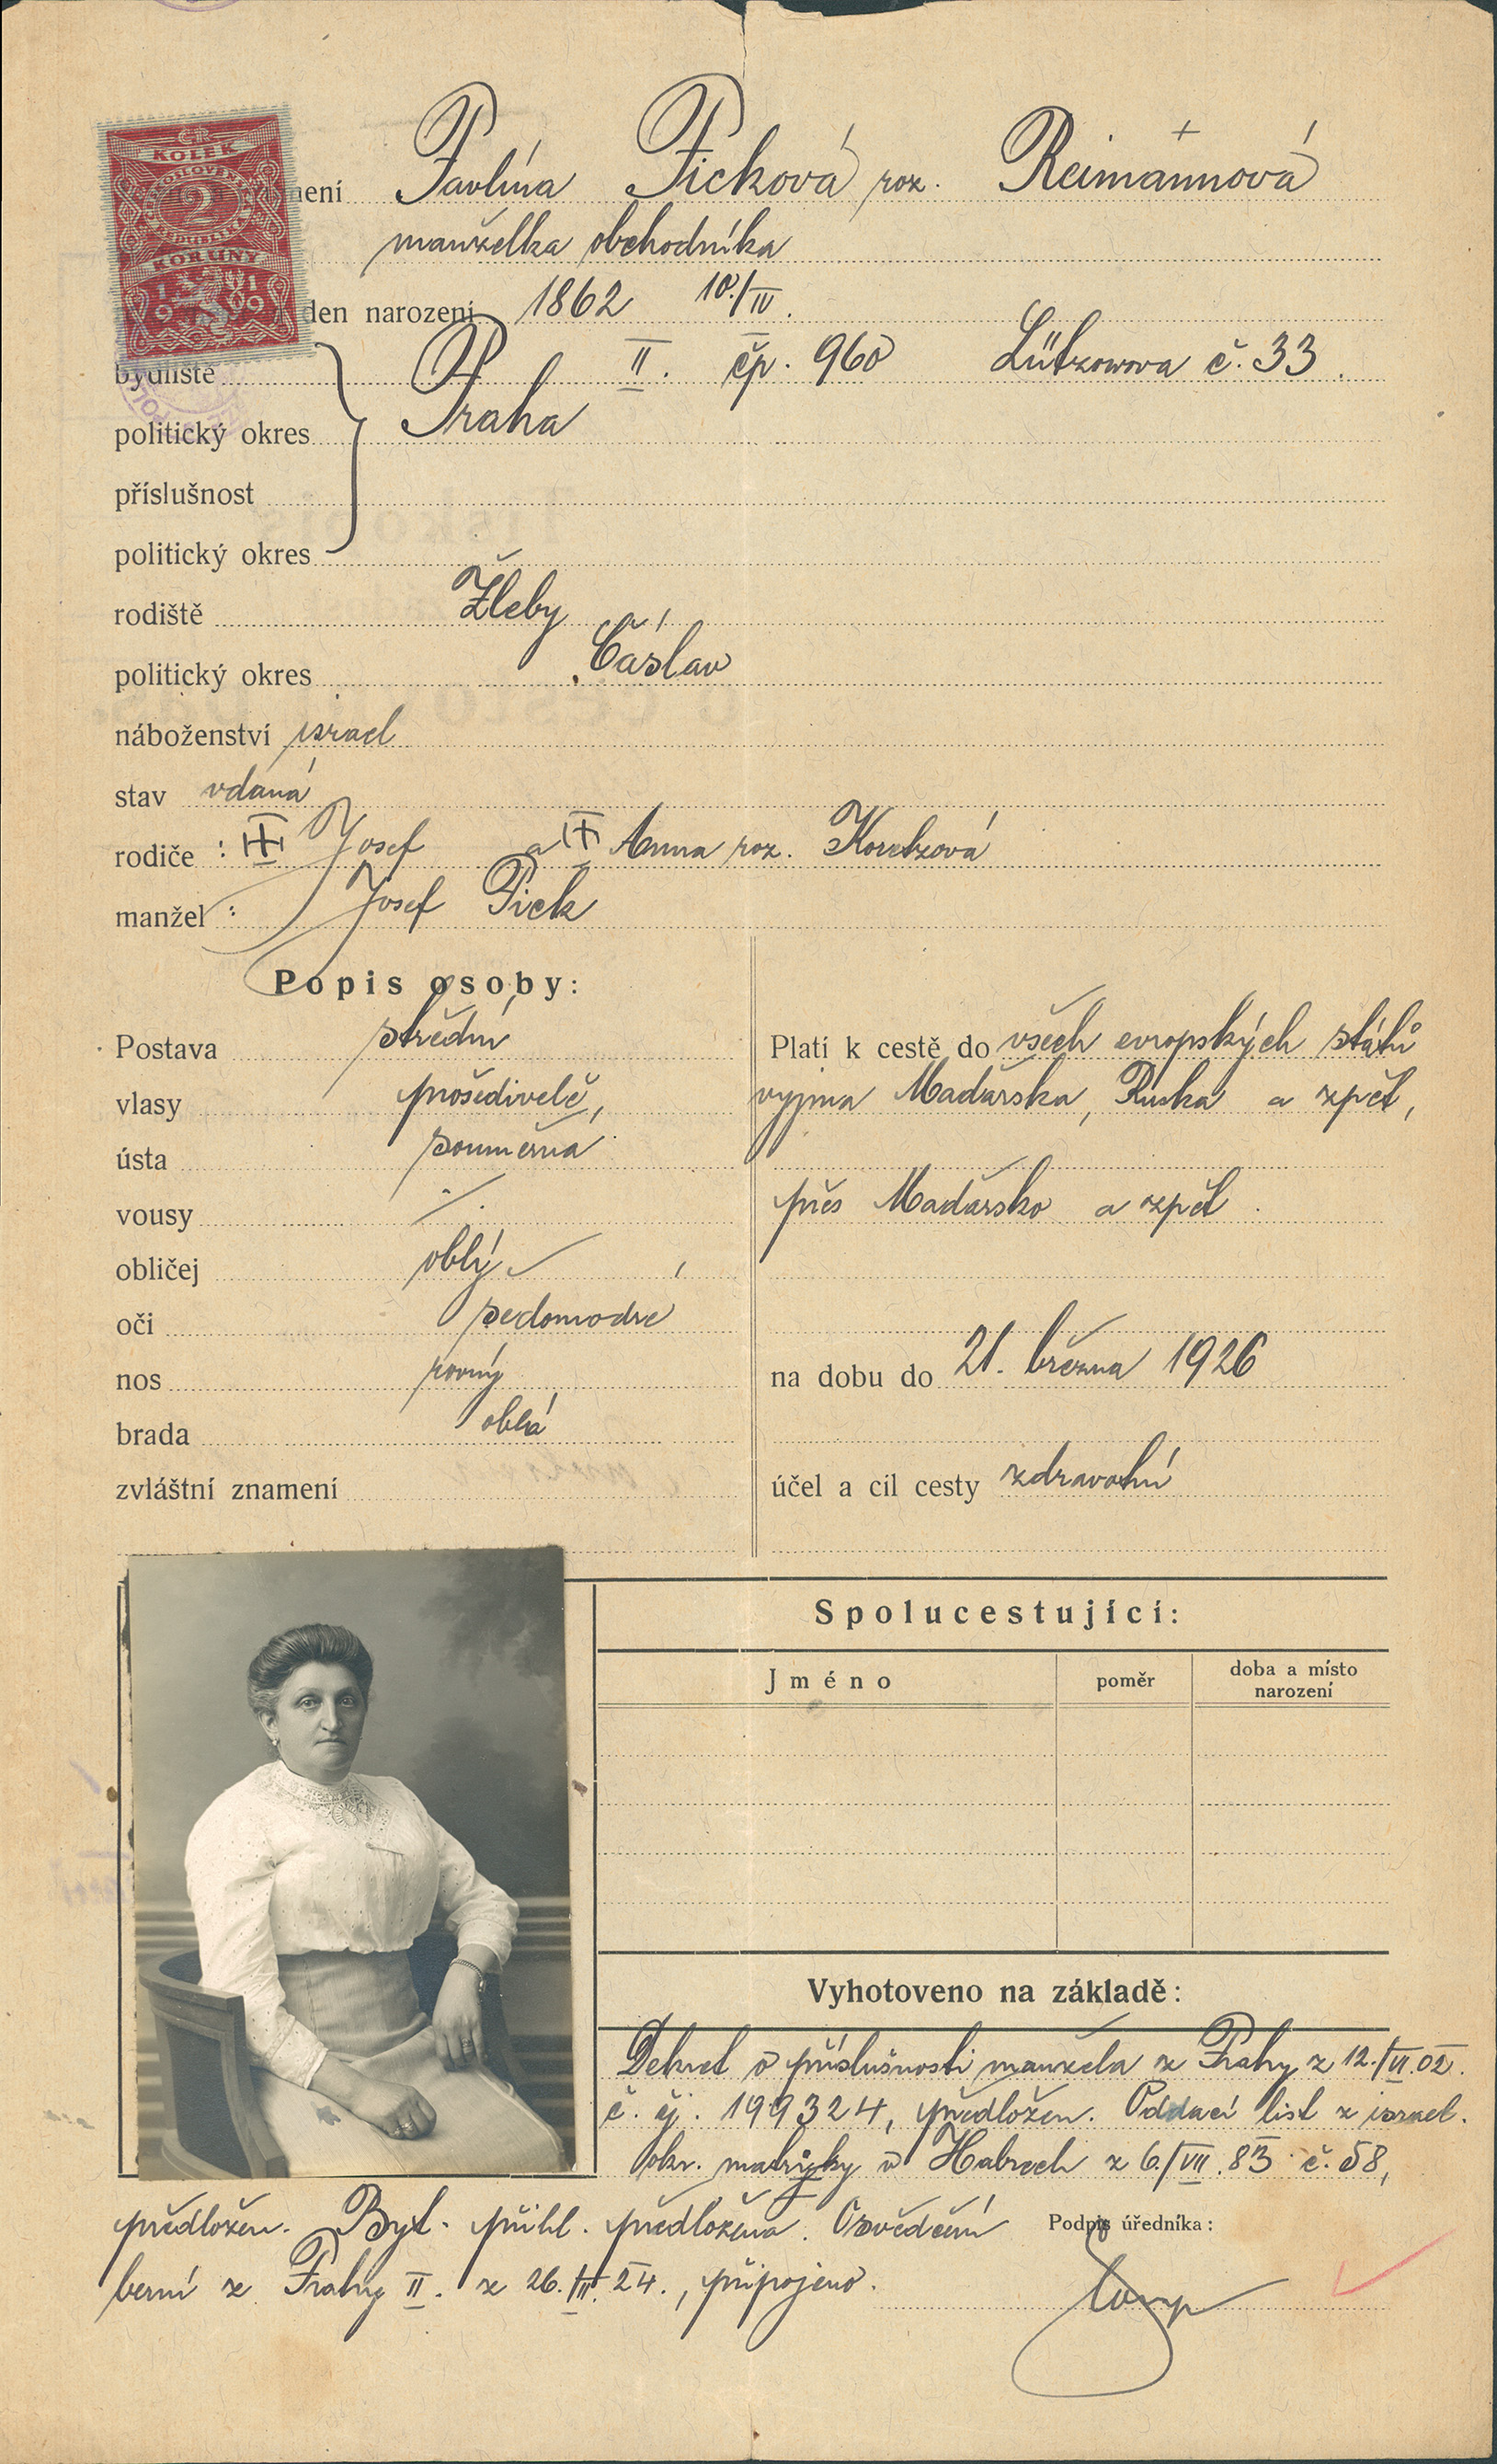 ČR
KOLEK
2
KORUNY
1919
mení Pavlína Picková roz. Reimannová
manželka obchodníka
den narození 1862 10./IV.
bydliště Praha II. čp. 960 Lützowova č. 33.
politický okres
příslušnost
politický okres
rodiště Žleby
politický okres Čáslav
náboženství israel
stav vdaná
rodiče : Josef a Anna roz.
manžel : Josef Pick
Popis osoby:
Postava střední
vlasy prošedivělé,
ústa souměrná
vousy ./.
obličej oblý
oči šedomodré
nos rovný
brada oblá
zvláštní znamení
Platí k cestě do všech evropských států
vyjma Maďarska, Ruska a zpět,
přes Maďarsko a zpět.
na dobu do 21. března 1926
účel a cíl cesty zdravotní
Spolucestující:
Jméno poměr doba a místo narození
Vyhotoveno na základě:
Dekret o příslušnosti manžela z Prahy z 12./VI.02.
č. čj. 199324, předložen. Oddací list z israel.
okr. matriky v Habrech z 6./VII.83 č. 58,
předložen. Byt. přihl. předložena. Osvědčení
berní z Prahy II. z 26./III.24., připojeno.
Podpis úředníka: